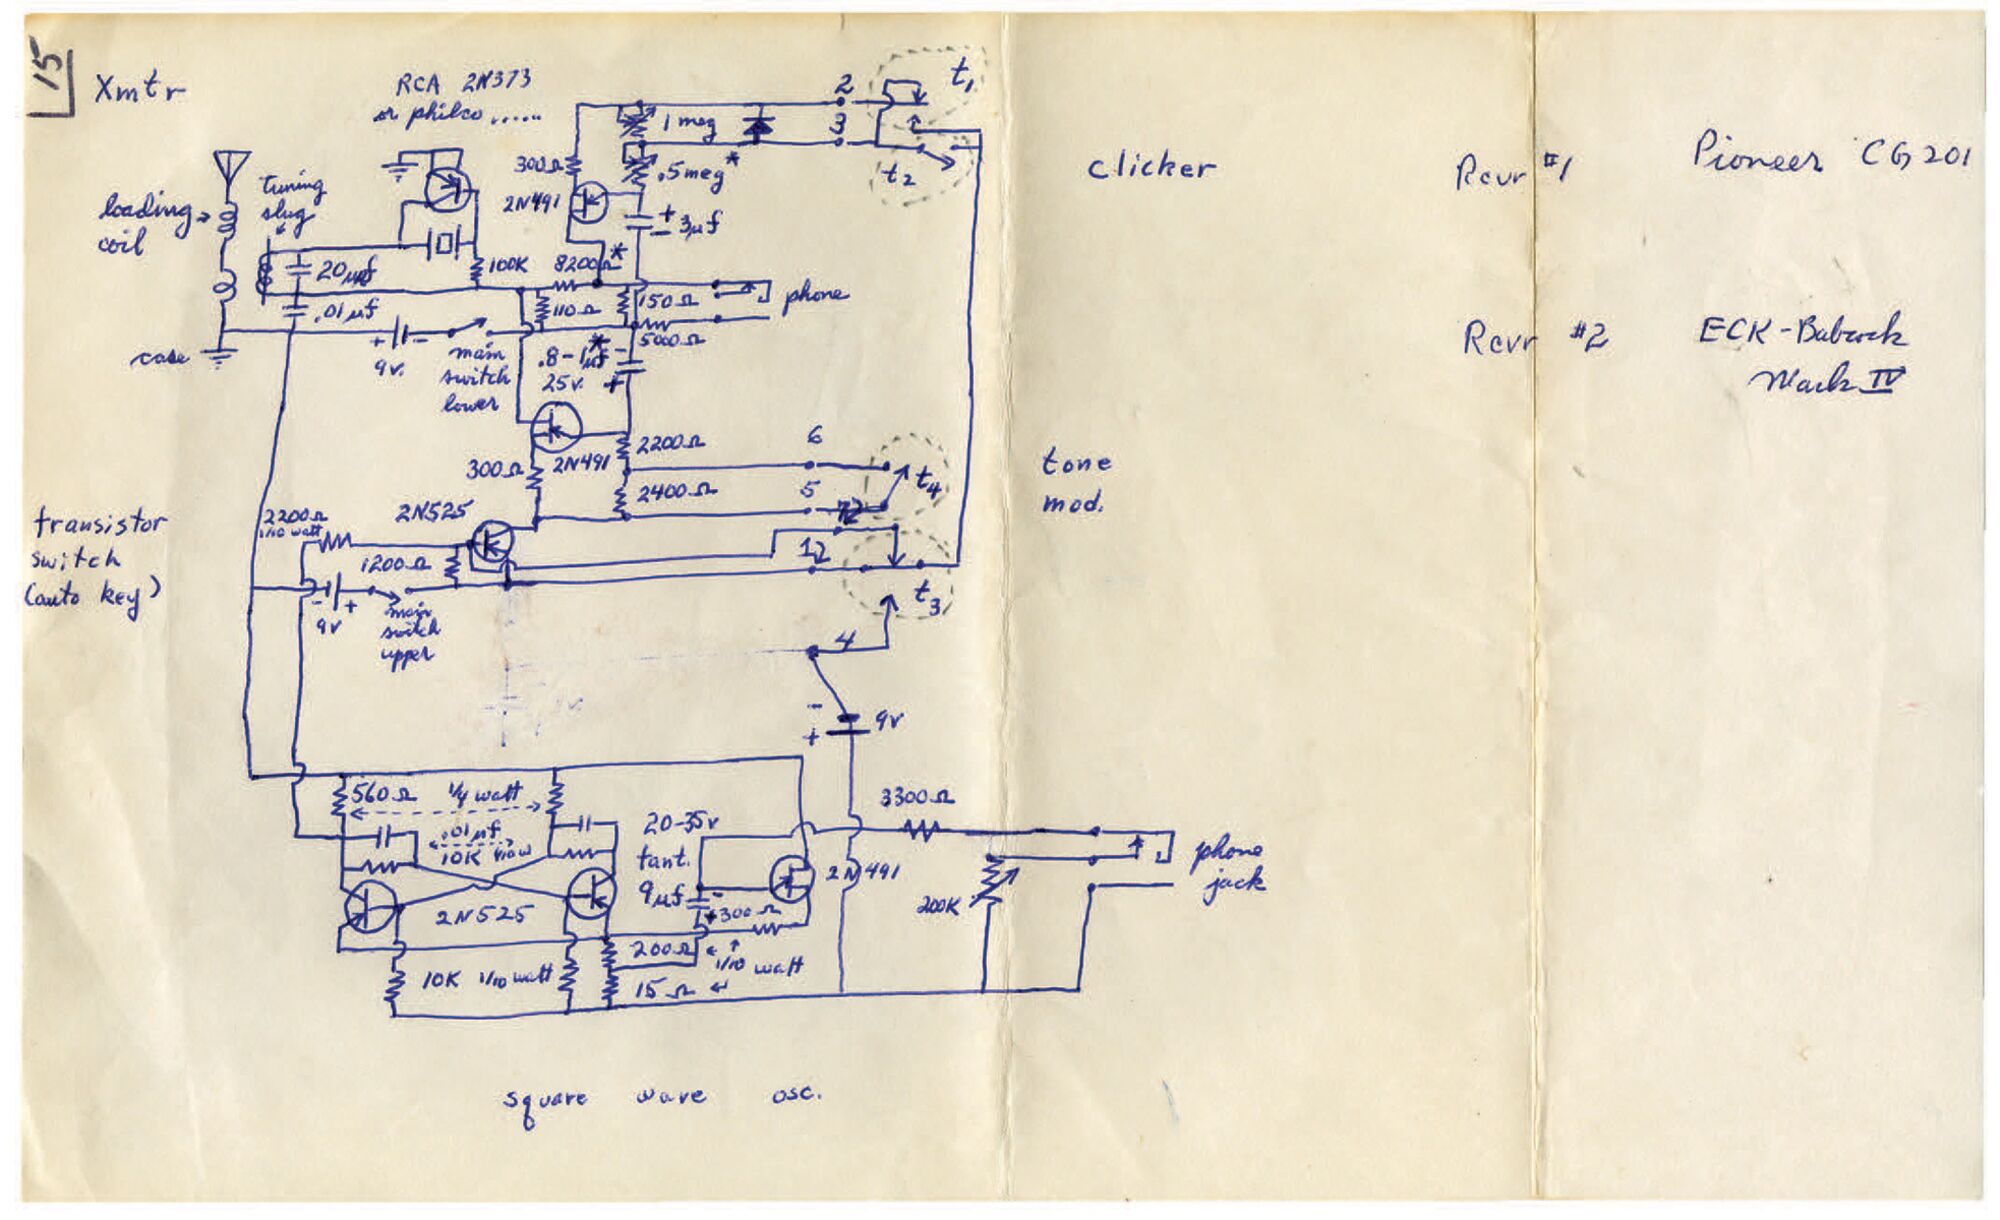 15
Xmtr
RCA 2N373
or philco ......
2
t₁
1 meg
3
300Ω
.5 meg*
t₂
clicker
Rcvr #1
Pioneer CG201
tuning
slug
loading
coil
2N491
+
3µf
-
20µµf
100K
8200Ω*
.01µf
110Ω
150Ω
phone
5000Ω
case
+ -
9v.
main
switch
lower
.8-1µf* -
25v. +
Rcvr #2
ECK-Babcock
Mark IV
2200Ω
6
300Ω
2N491
t₄
tone
mod.
2400Ω
5
transistor
switch
(auto key)
2200Ω
1/10 watt
2N525
12
1200Ω
- +
9v
main
switch
upper
t₃
4
-
+
9v
560Ω
1/4 watt
3300Ω
.01µf
10K 1/10 w
20-35v
tant.
9µf
-
+
300Ω
2N491
200K
phone
jack
2N525
200Ω
1/10 watt
10K 1/10 watt
15Ω
square wave osc.